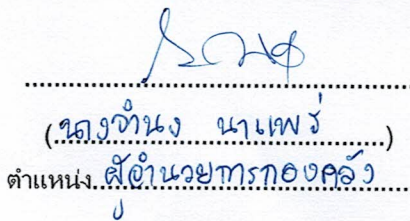 (นางจำนง นาแพร่)
ตำแหน่ง ผู้อำนวยการกองคลัง